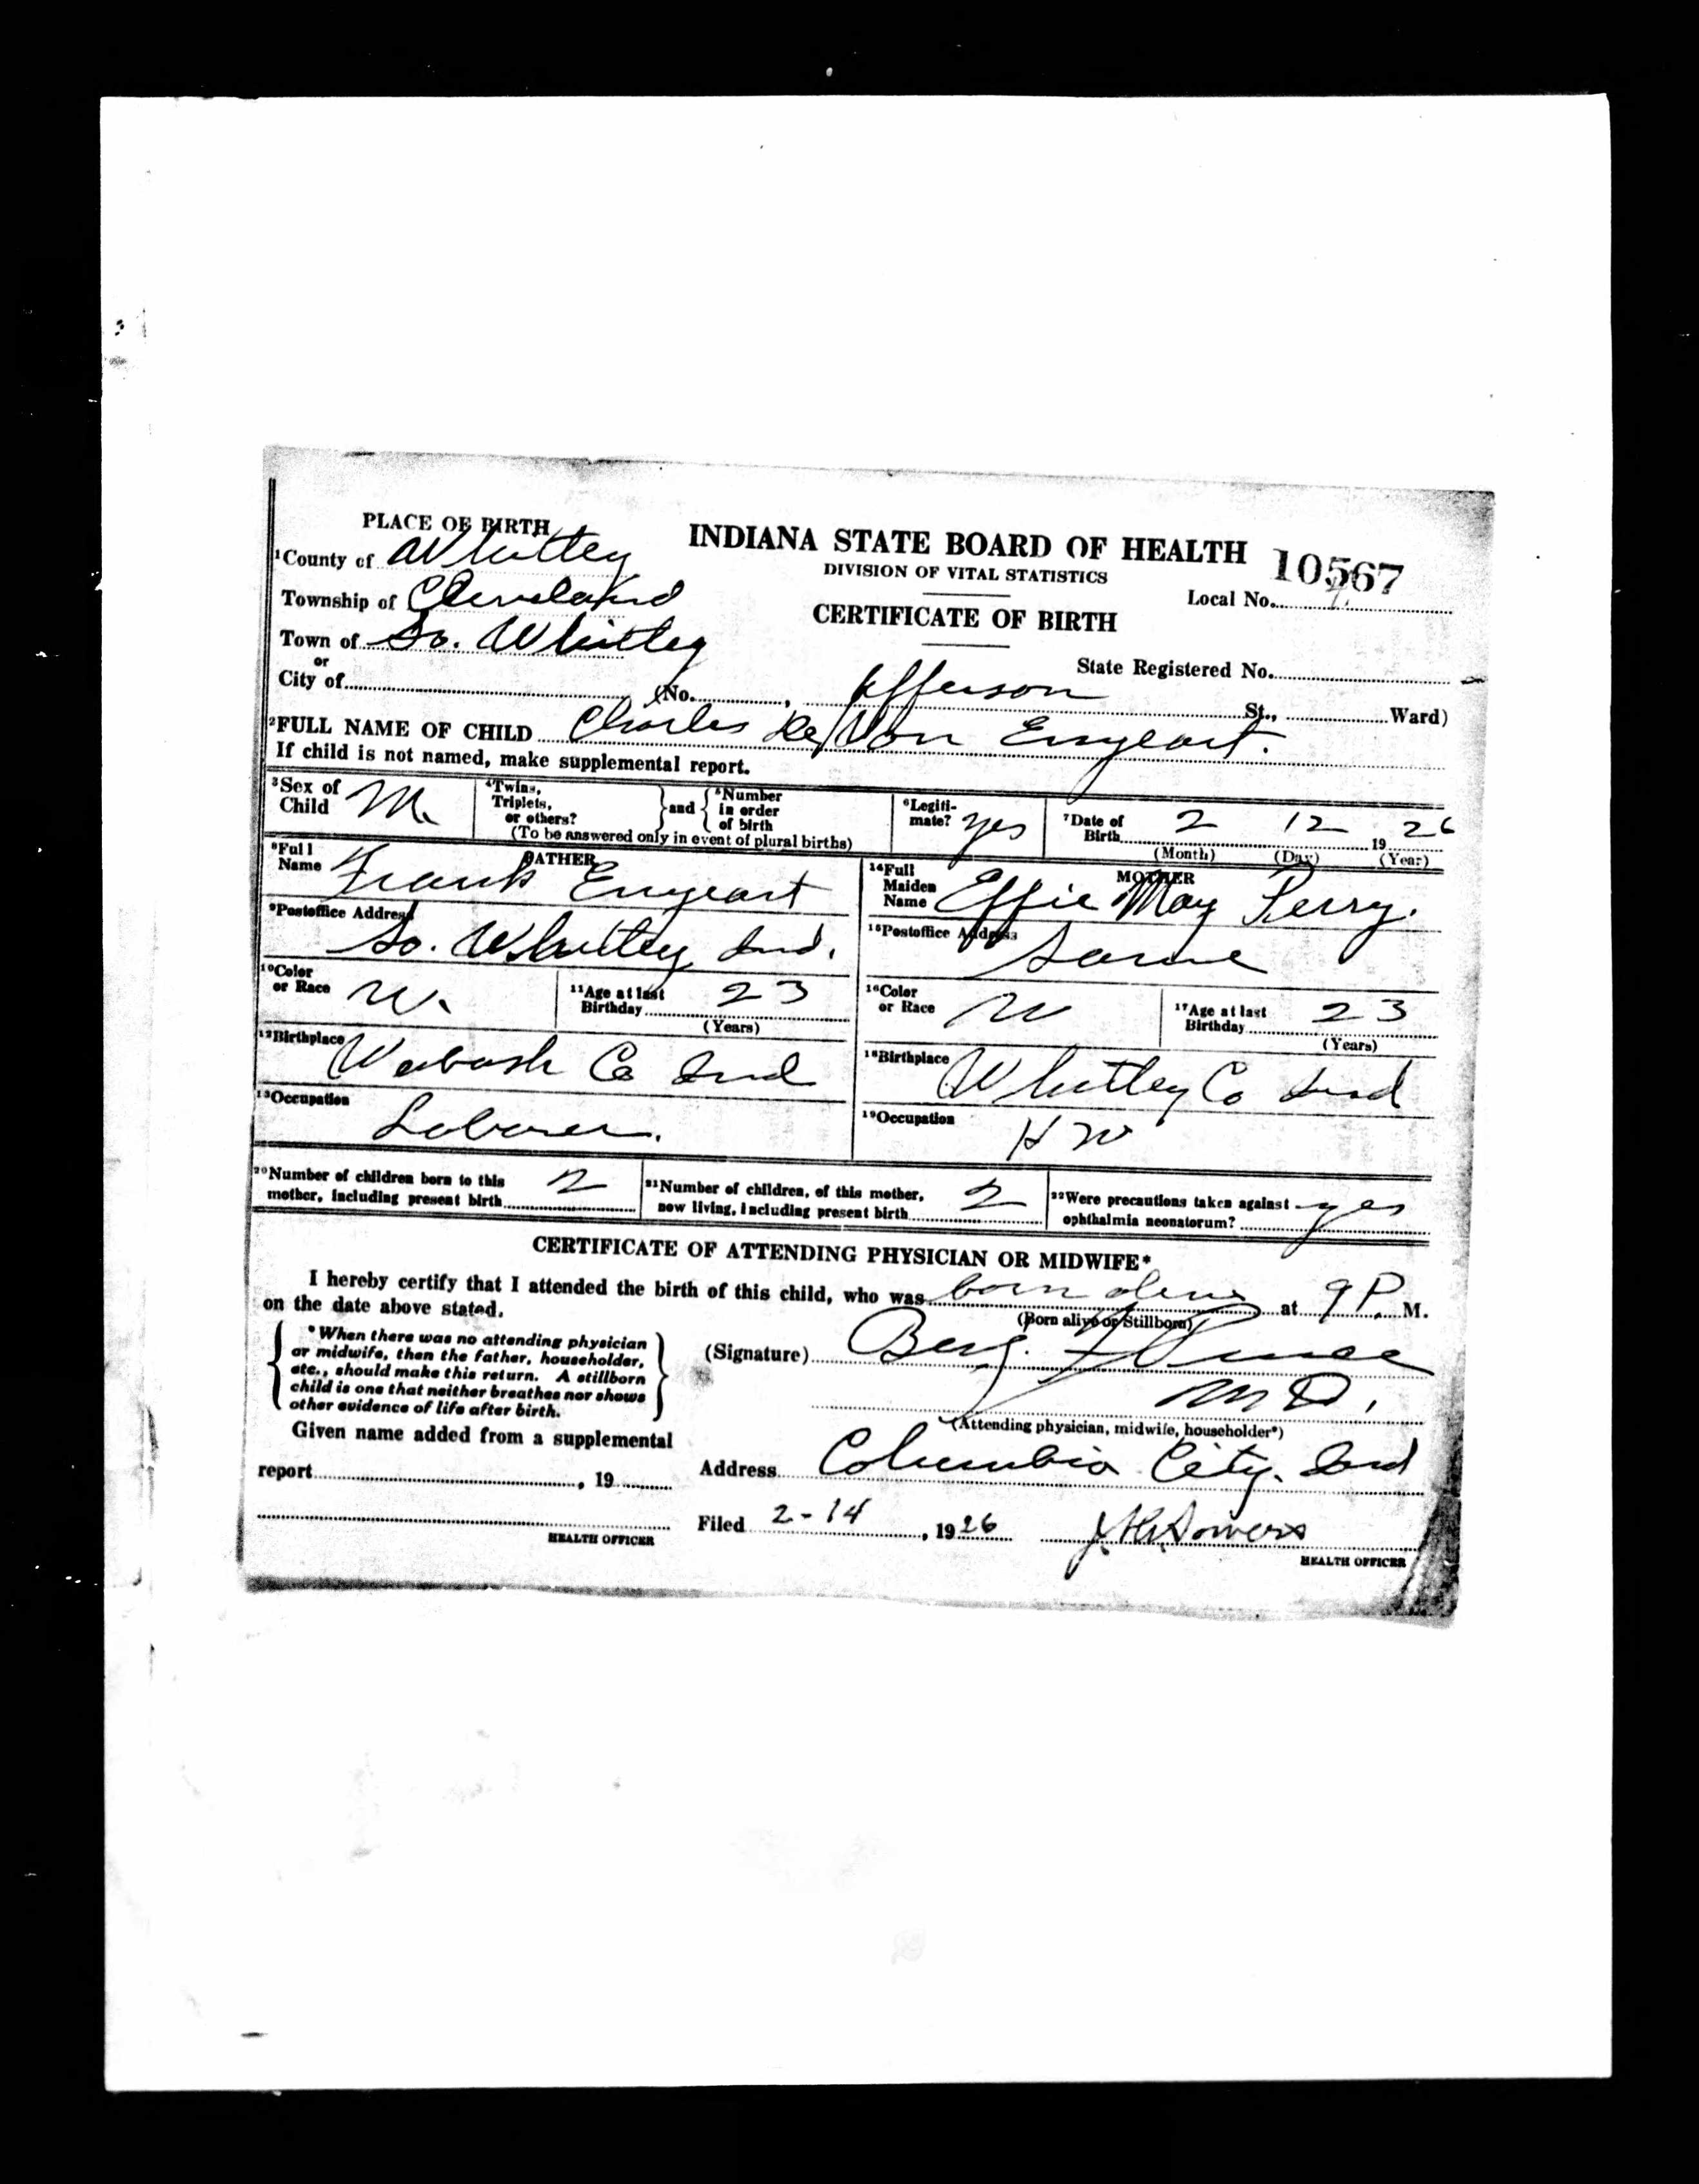 PLACE OF BIRTH
¹County of Whitley
Township of Cleveland
Town of So. Whitley
or
City of
INDIANA STATE BOARD OF HEALTH
DIVISION OF VITAL STATISTICS
CERTIFICATE OF BIRTH
10567
Local No.
State Registered No.
(No. , Jefferson St., Ward)
²FULL NAME OF CHILD Charles De Von Enyeart.
If child is not named, make supplemental report.
³Sex of Child M.
⁴Twins, Triplets, or others? and ⁵Number in order of birth
(To be answered only in event of plural births)
⁶Legiti-mate? yes
⁷Date of Birth 2 12 1926
(Month) (Day) (Year)
FATHER
⁸Full Name Frank Enyeart
⁹Postoffice Address So. Whitley Ind.
¹⁰Color or Race W.
¹¹Age at last Birthday 23
(Years)
¹²Birthplace Wabash Co Ind
¹³Occupation Laborer.
MOTHER
¹⁴Full Maiden Name Effie May Perry.
¹⁵Postoffice Address Same
¹⁶Color or Race W
¹⁷Age at last Birthday 23
(Years)
¹⁸Birthplace Whitley Co Ind
¹⁹Occupation HW
²⁰Number of children born to this mother, including present birth 2
²¹Number of children, of this mother, now living, including present birth 2
²²Were precautions taken against ophthalmia neonatorum? yes
CERTIFICATE OF ATTENDING PHYSICIAN OR MIDWIFE*
I hereby certify that I attended the birth of this child, who was born alive at 9 P. M.
(Born alive or Stillborn)
on the date above stated.
*When there was no attending physician
or midwife, then the father, householder,
etc., should make this return. A stillborn
child is one that neither breathes nor shows
other evidence of life after birth.
(Signature) Benj. F M D.
(Attending physician, midwife, householder*)
Given name added from a supplemental
report , 19
HEALTH OFFICER
Address Columbia City. Ind
Filed 2-14, 1926
HEALTH OFFICER